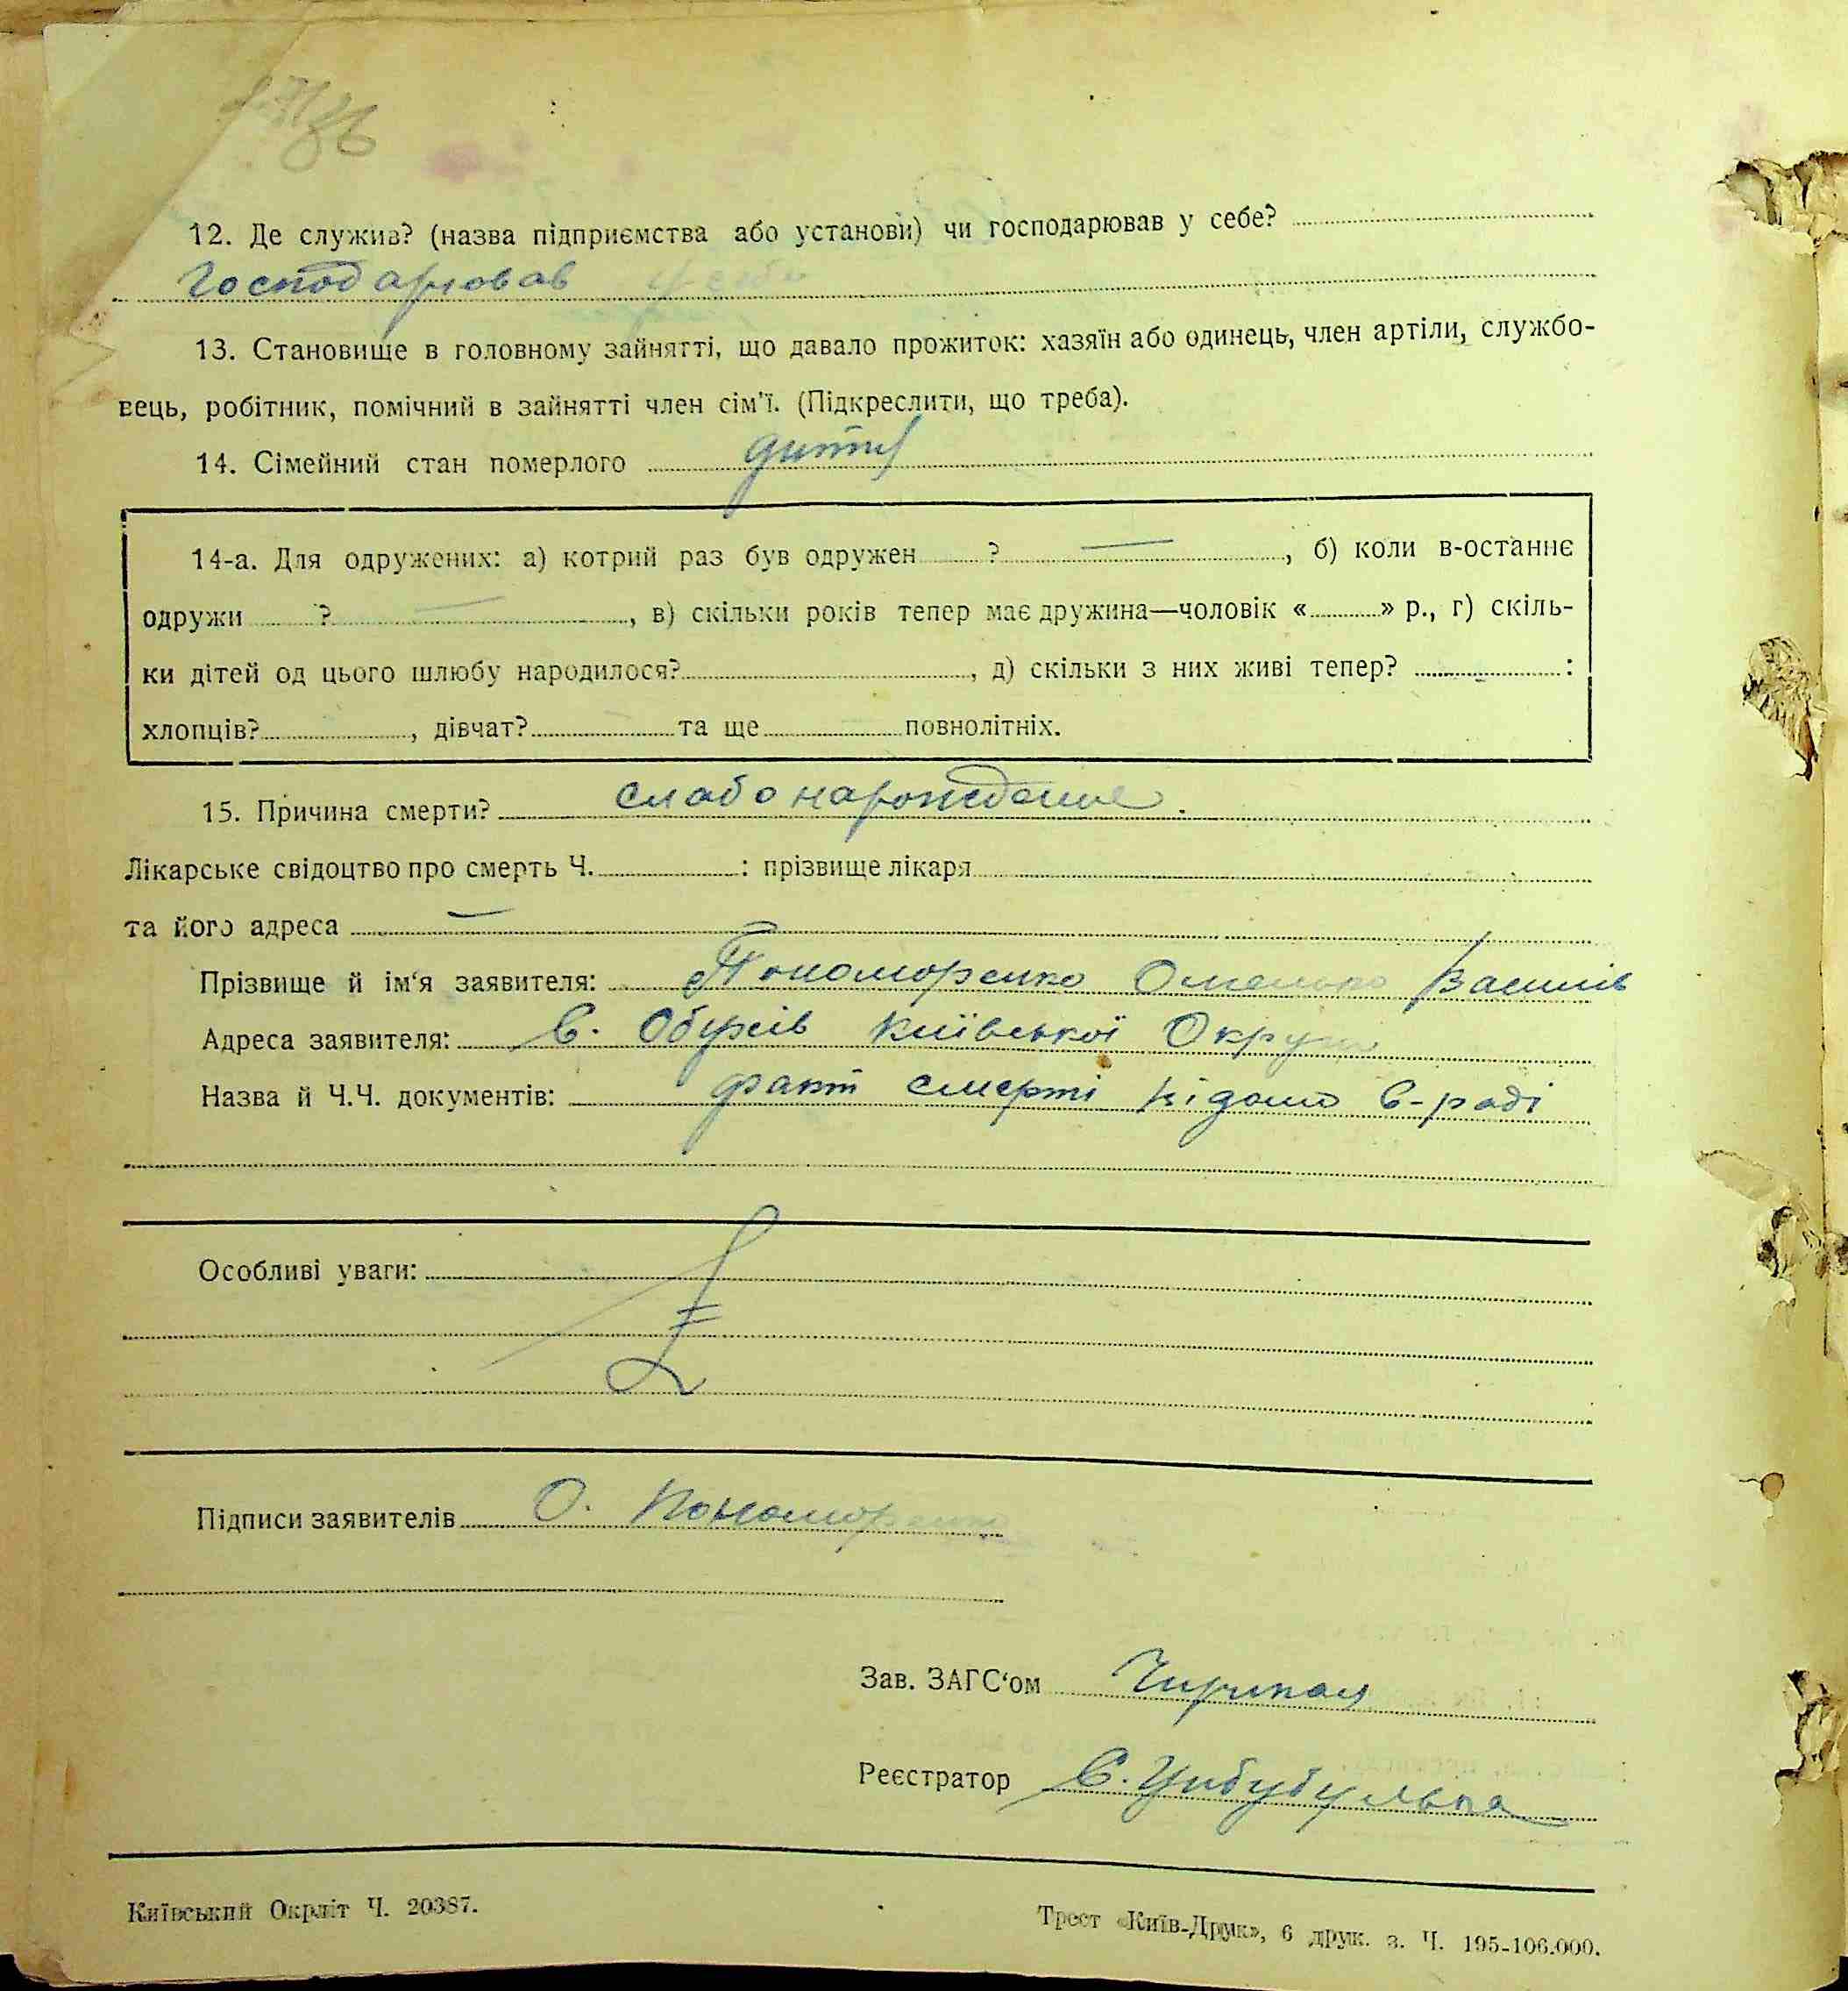 12. Де служив? (назва підприємства або установи) чи господарював у себе?
Господарював у себе
13. Становище в головному зайнятті, що давало прожиток: хазяїн або одинець, член артіли, службо-
вець, робітник, помічний в зайнятті член сім'ї. (Підкреслити, що треба).
14. Сімейний стан померлого дитя
14-а. Для одружених: а) котрий раз був одружен ? —, б) коли в-останнє
одружи ? —, в) скільки років тепер має дружина—чоловік « » р., г) скіль-
ки дітей од цього шлюбу народилося? , д) скільки з них живі тепер? :
хлопців? , дівчат? та ще повнолітніх.
15. Причина смерти? слабонарождение.
Лікарське свідоцтво про смерть Ч. : прізвище лікаря
та його адреса —
Прізвище й ім'я заявителя: Пономоренко Омелько Василів
Адреса заявителя: С. Обухів Київської Округи
Назва й Ч.Ч. документів: факт смерті відомо С-раді
Особливі уваги:
Підписи заявителів О. Пономоренко
Зав. ЗАГС'ом
Реєстратор Є. Цибульська
Київський Окрліт Ч. 20387.
Трест «Київ-Друк», 6 друк. з. Ч. 195-106.000.